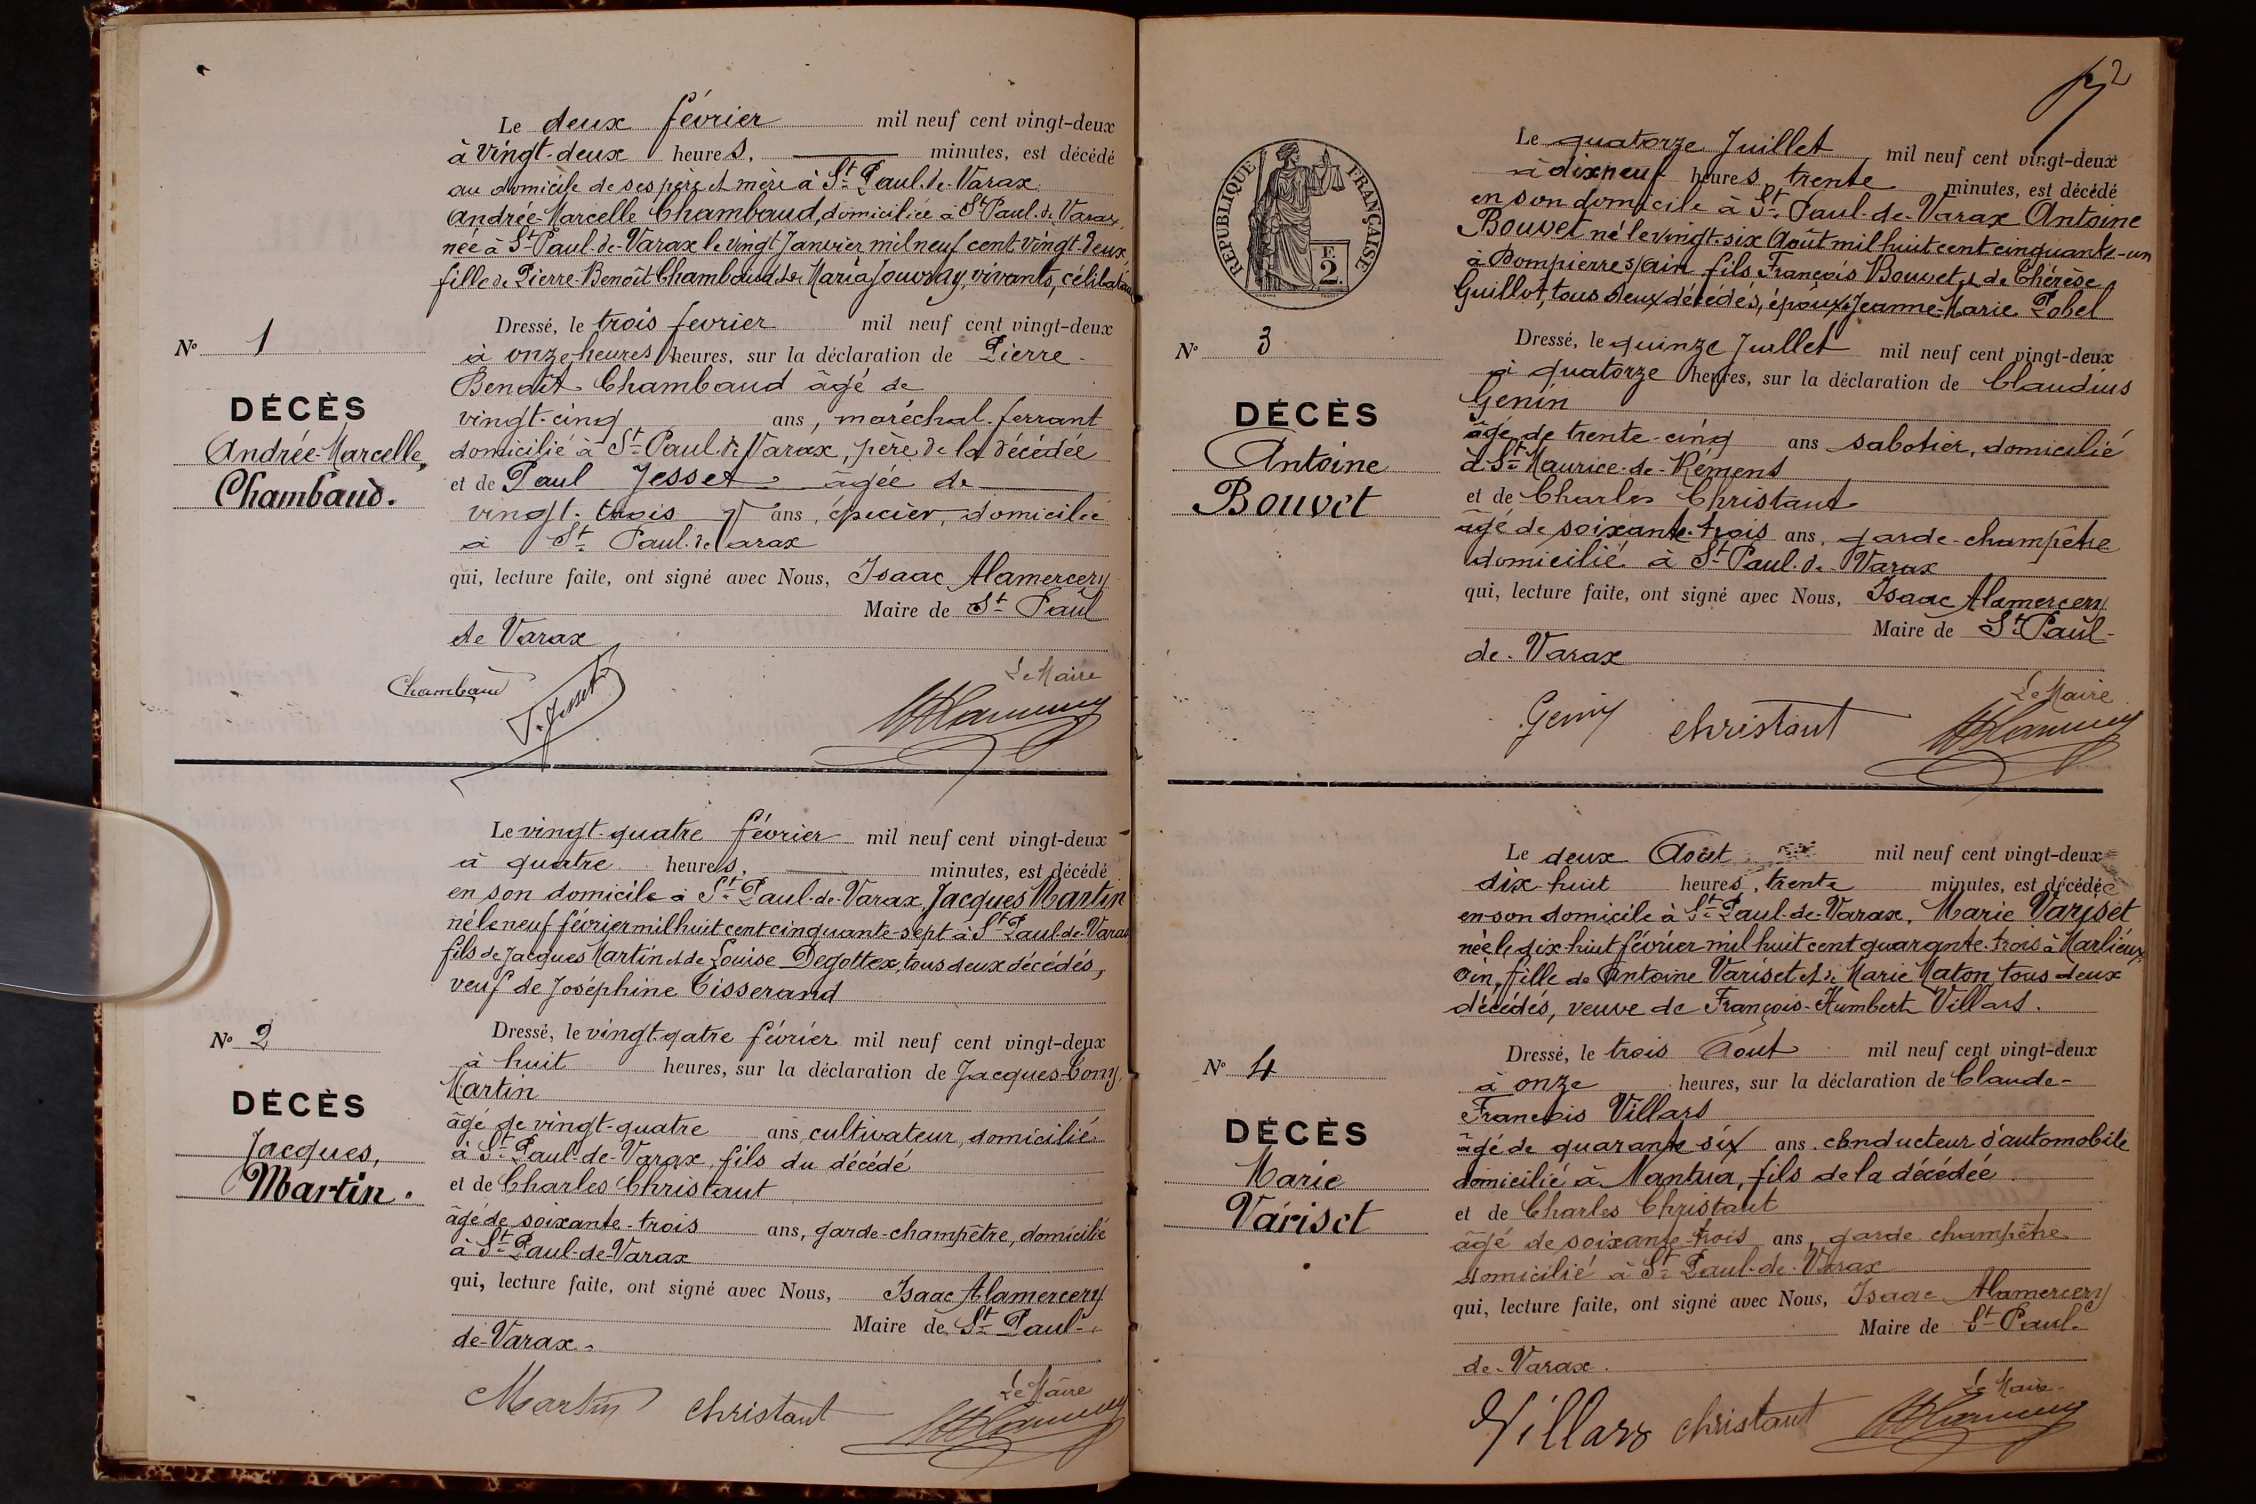 Le deux février mil neuf cent vingt-deux
à vingt-deux heures, minutes, est décédé
au domicile de ses père et mère à St Paul-de-Varax
Andrée-Marcelle Chambaud, domiciliée à St Paul-de Varax,
née à St Paul-de-Varax le vingt Janvier mil neuf cent vingt-deux,
fille de Pierre-Benoît Chambaud et de Maria Jouvray, vivants, célibataire
Dressé, le trois fevrier mil neuf cent vingt-deux
N° 1
à onze heures heures, sur la déclaration de Pierre-
Benoît Chambaud âgé de
DÉCÈS
vingt-cinq ans, maréchal-ferrant
Andrée-Marcelle,
domicilié à St Paul de Varax, père de la décédée
Chambaud.
et de Paul Jesset âgée de
vingt-trois ans, épicier, domicilié
à St Paul-de Varax
qui, lecture faite, ont signé avec Nous, Isaac Alamercery
Maire de St Paul
de Varax
Le Maire
Chambaud P. Jesset
Le vingt-quatre février mil neuf cent vingt-deux
à quatre heures, minutes, est décédé
en son domicile à St Paul-de-Varax, Jacques Martin
né le neuf février mil huit cent cinquante-sept à St Paul-de-Varax
fils de Jacques Martin et de Louise Degottex, tous deux décédés,
veuf de Joséphine Tisserand
N° 2
Dressé, le vingt-qatre février mil neuf cent vingt-deux
à huit heures, sur la déclaration de Jacques-Tony,
Martin
DÉCÈS
âgé de vingt-quatre ans, cultivateur, domicilié
Jacques,
à St Paul-de-Varax, fils du décédé
Martin.
et de Charles Christaut
âgé de soixante-trois ans, garde-champêtre, domicilié
à St Paul-de-Varax
qui, lecture faite, ont signé avec Nous, Isaac Alamercery
Maire de St Paul-
de-Varax.
Le Maire
Martin Christaut
2
RÉPUBLIQUE FRANÇAISE
F.
2.
Le quatorze Juillet mil neuf cent vingt-deux
à dixneuf heures trente minutes, est décédé
en son domicile à St Paul-de-Varax Antoine
Bouvet né le vingt-six Août mil huit cent cinquante-un
à Dompierre s/ain fils François Bouvet et de Thérèse
Guillot, tous deux décédés, époux Jeanne-Marie Pobel
N° 3
Dressé, le quinze Juillet mil neuf cent vingt-deux
à quatorze heures, sur la déclaration de Claudius
Genin
DÉCÈS
âgé de trente-cinq ans sabotier, domicilié
Antoine
à St Maurice-de-Rémens
Bouvet
et de Charles Christaut
âgé de soixante-trois ans, garde-champêtre
domicilié à St Paul-de-Varax
qui, lecture faite, ont signé avec Nous, Isaac Alamercery
Maire de St Paul-
de-Varax
Le Maire
Genin Christaut
Le deux Août mil neuf cent vingt-deux
dix huit heures, trente minutes, est décédée
en son domicile à St Paul-de-Varax, Marie Variset
née le dix-huit février mil huit cent quarante-trois à Marlieux,
Ain, fille de Antoine Variset et de Marie Maton, tous deux
décédés, veuve de François-Humbert Villars.
N° 4
Dressé, le trois Août mil neuf cent vingt-deux
à onze heures, sur la déclaration de Claude-
François Villars
DÉCÈS
âgé de quarante six ans conducteur d'automobile
Marie
domicilié à Nantua, fils de la décédée
Variset
et de Charles Christaut
âgé de soixante-trois ans, garde champêtre
domicilié à St Paul-de-Varax
qui, lecture faite, ont signé avec Nous, Isaac Alamercery
Maire de St Paul-
de-Varax.
Le Maire
Villars Christaut